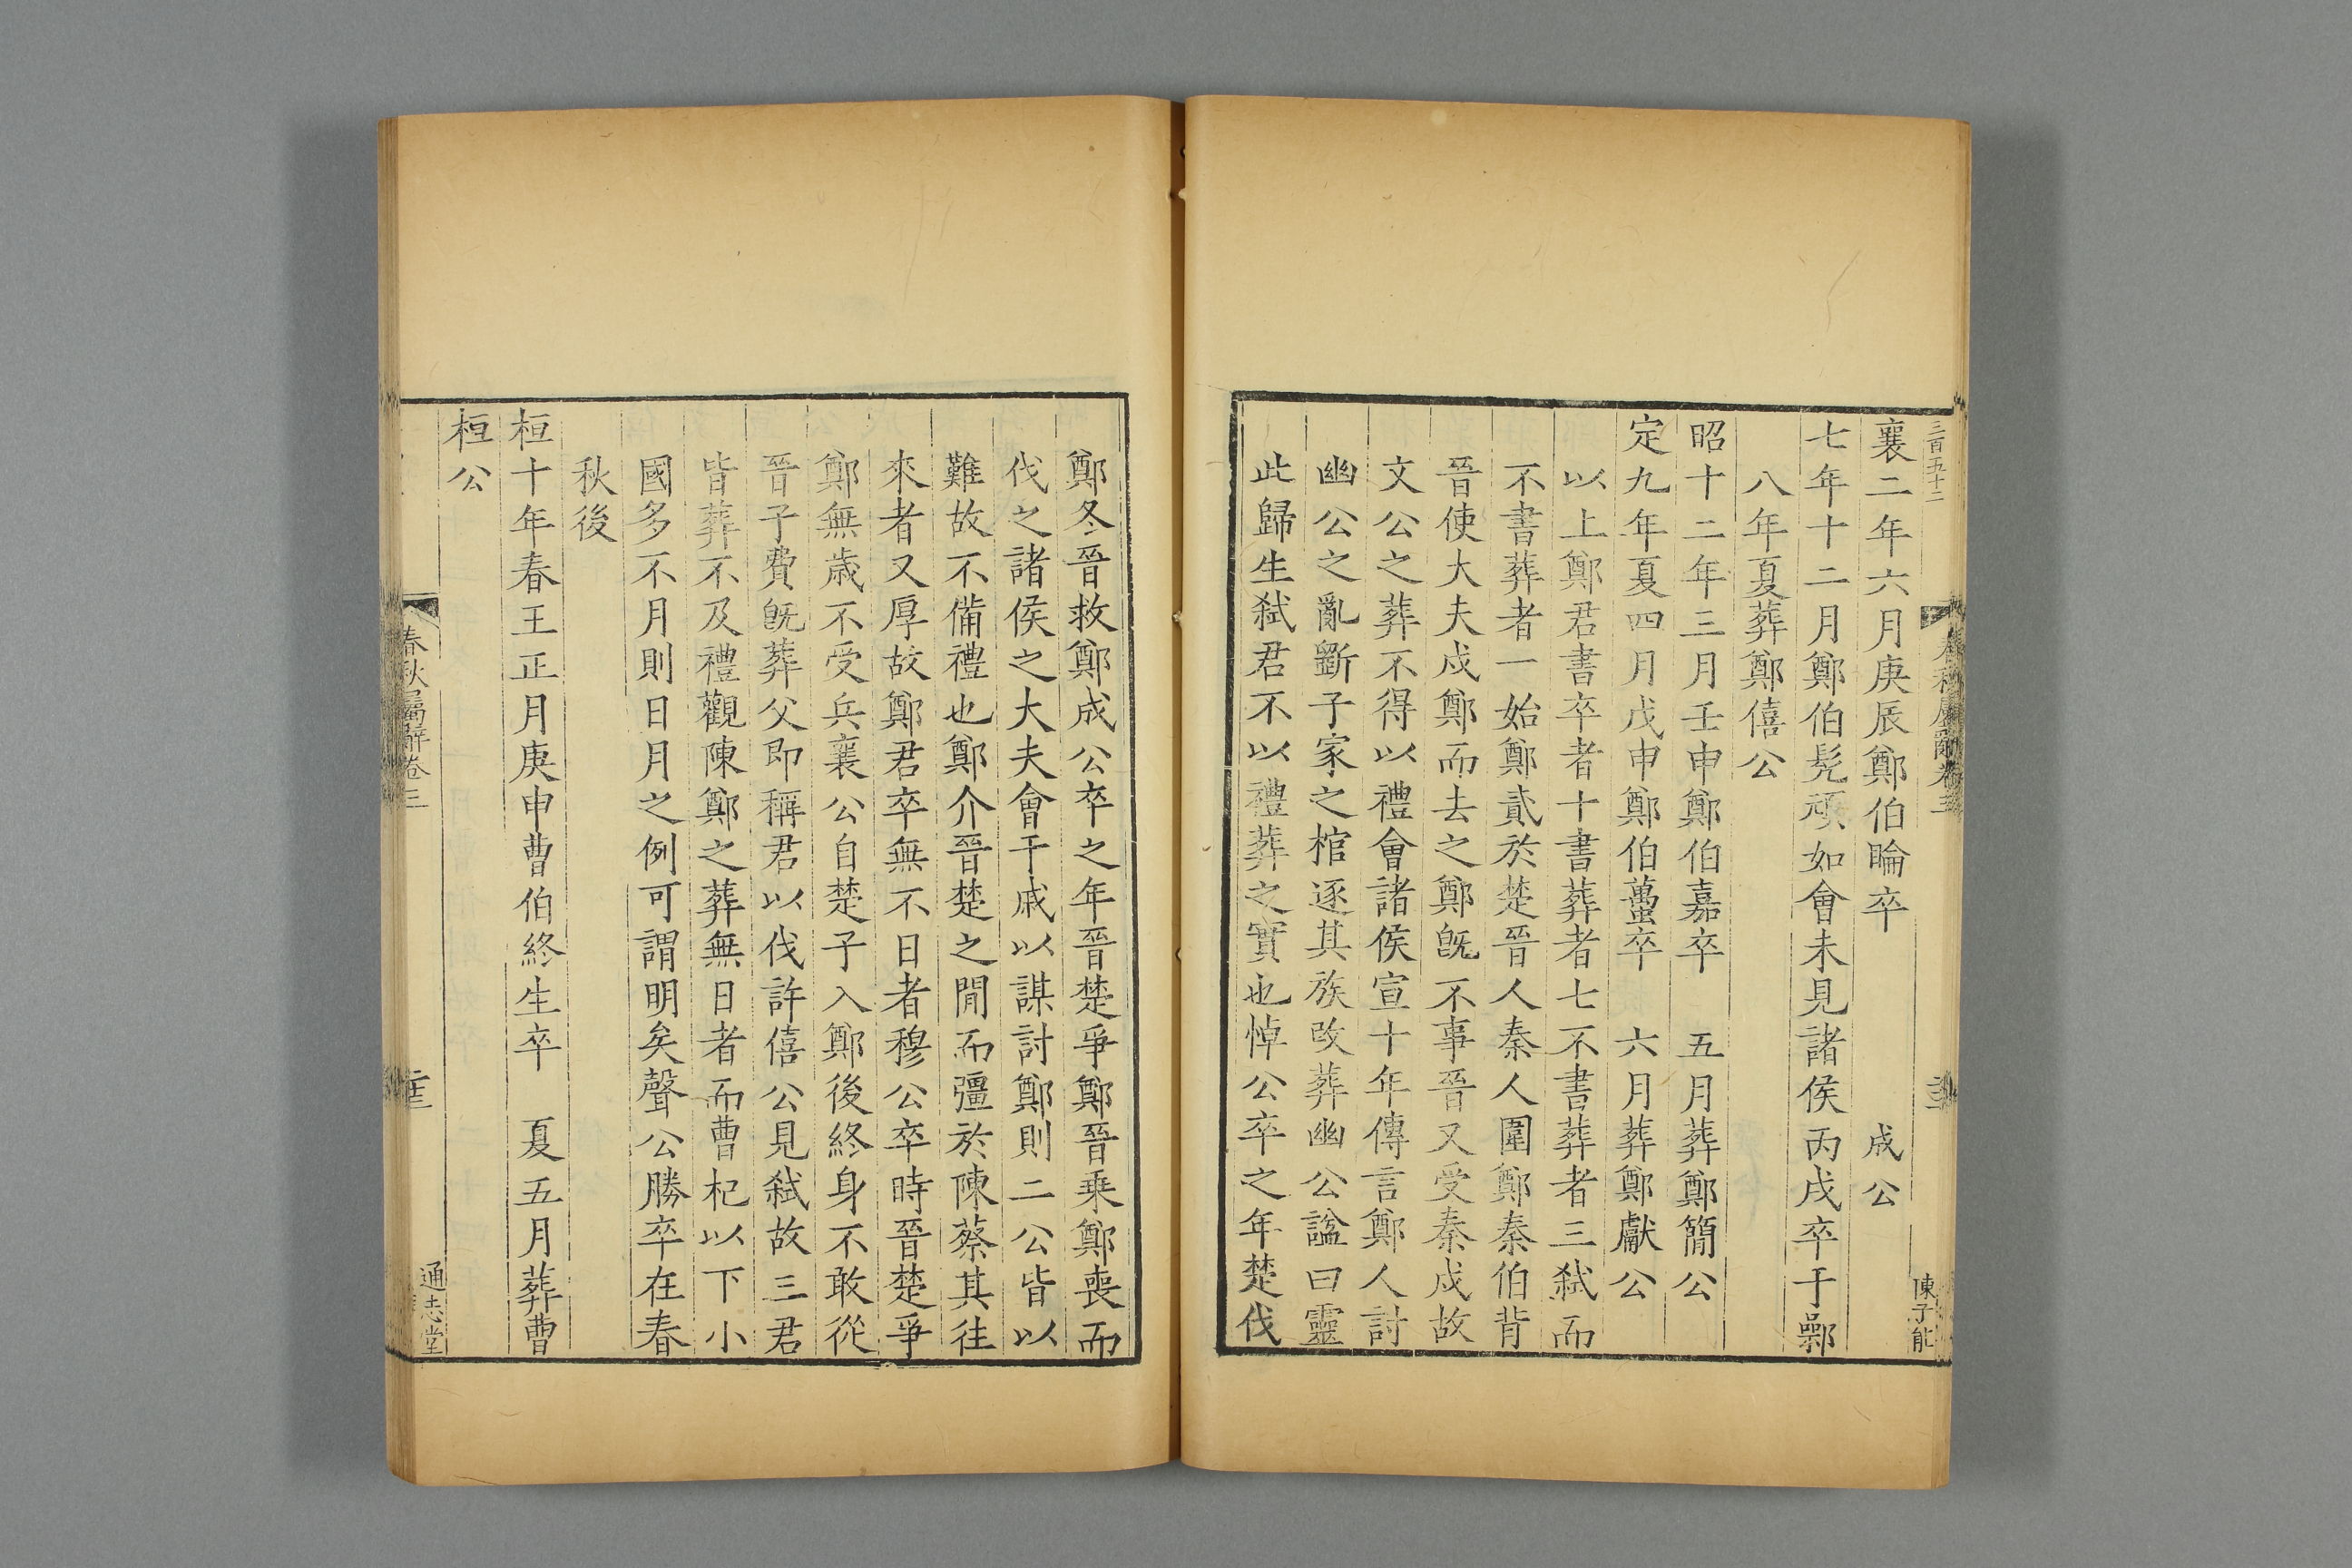 三百五十二
陳子能
襄二年六月庚辰鄭伯睔卒 成公
七年十二月鄭伯髠頑如會未見諸侯丙戌卒于鄵
八年夏葬鄭僖公
昭十二年三月壬申鄭伯嘉卒 五月葬鄭簡公
定九年夏四月戊申鄭伯蠆卒 六月葬鄭獻公
以上鄭君書卒者十書葬者七不書葬者三弑而
不書葬者一始鄭貳於楚晉人秦人圍鄭秦伯背
晉使大夫戍鄭而去之鄭旣不事晉又受秦戍故
文公之葬不得以禮會諸侯宣十年傳言鄭人討
幽公之亂斲子家之棺逐其族改葬幽公諡曰靈
此歸生弑君不以禮葬之實也悼公卒之年楚伐
鄭冬晉救鄭成公卒之年晉楚爭鄭晉乗鄭喪而
伐之諸侯之大夫會于戚以謀討鄭則二公皆以
難故不備禮也鄭介晉楚之閒而彊於陳蔡其徃
來者又厚故鄭君卒無不日者穆公卒時晉楚爭
鄭無歳不受兵襄公自楚子入鄭後終身不敢從
晉子費旣葬父即稱君以伐許僖公見弑故三君
皆葬不及禮觀陳鄭之葬無日者而曹杞以下小
國多不月則日月之例可謂明矣聲公勝卒在春
秋後
桓十年春王正月庚申曹伯終生卒 夏五月葬曹
桓公
春秋屬辭卷三
通志堂